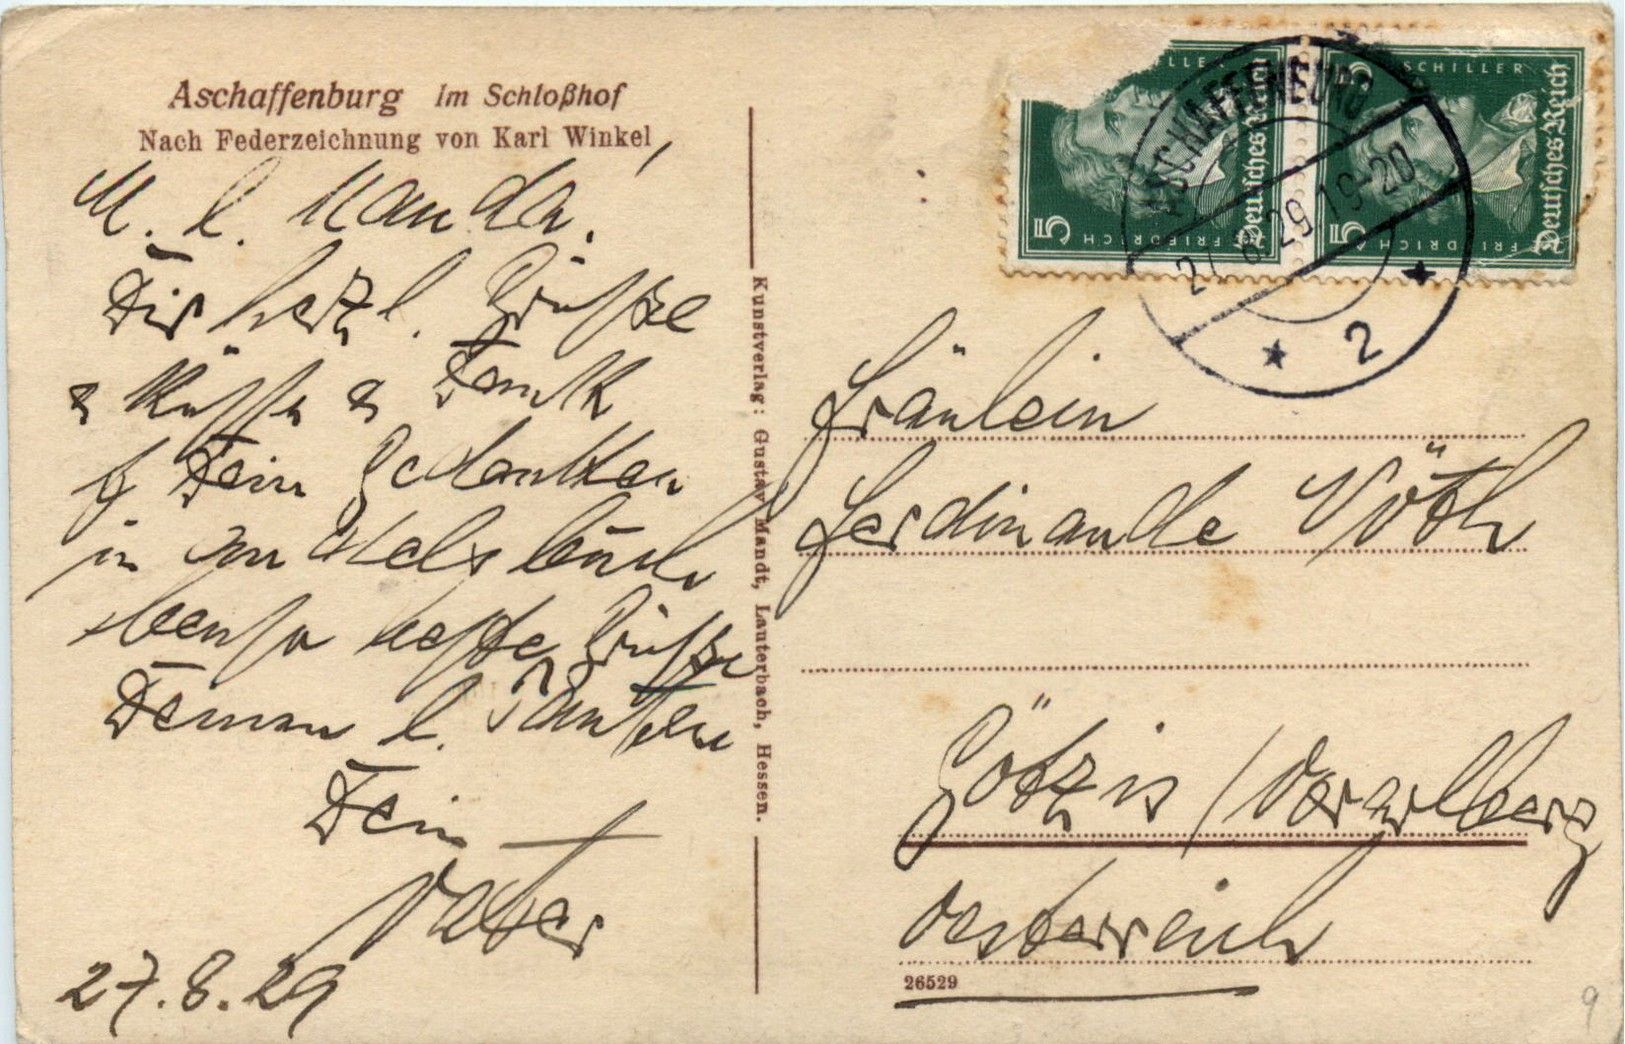 Aschaffenburg Im Schloßhof
Nach Federzeichnung von Karl Winkel
M. l. Nanda!
Dir herzl. Grüsse
& Küsse & Dank
f. Dein Gedenken
in
ebenso beste Grüsse
Deinen l. Tanten
Dein
Vater
27.8.29
Kunstverlag: Gustav Mandt, Lauterbach, Hessen.
SCHILLER
FRIEDRICH
5
Deutsches Reich
SCHILLER
FRIEDRICH
5
Deutsches Reich
ASCHAFFENBURG
27 8 29 19-20
* 2 *
Fräulein
Ferdinande Vöth
Götzis / Vorarlberg
Oesterreich
26529
9